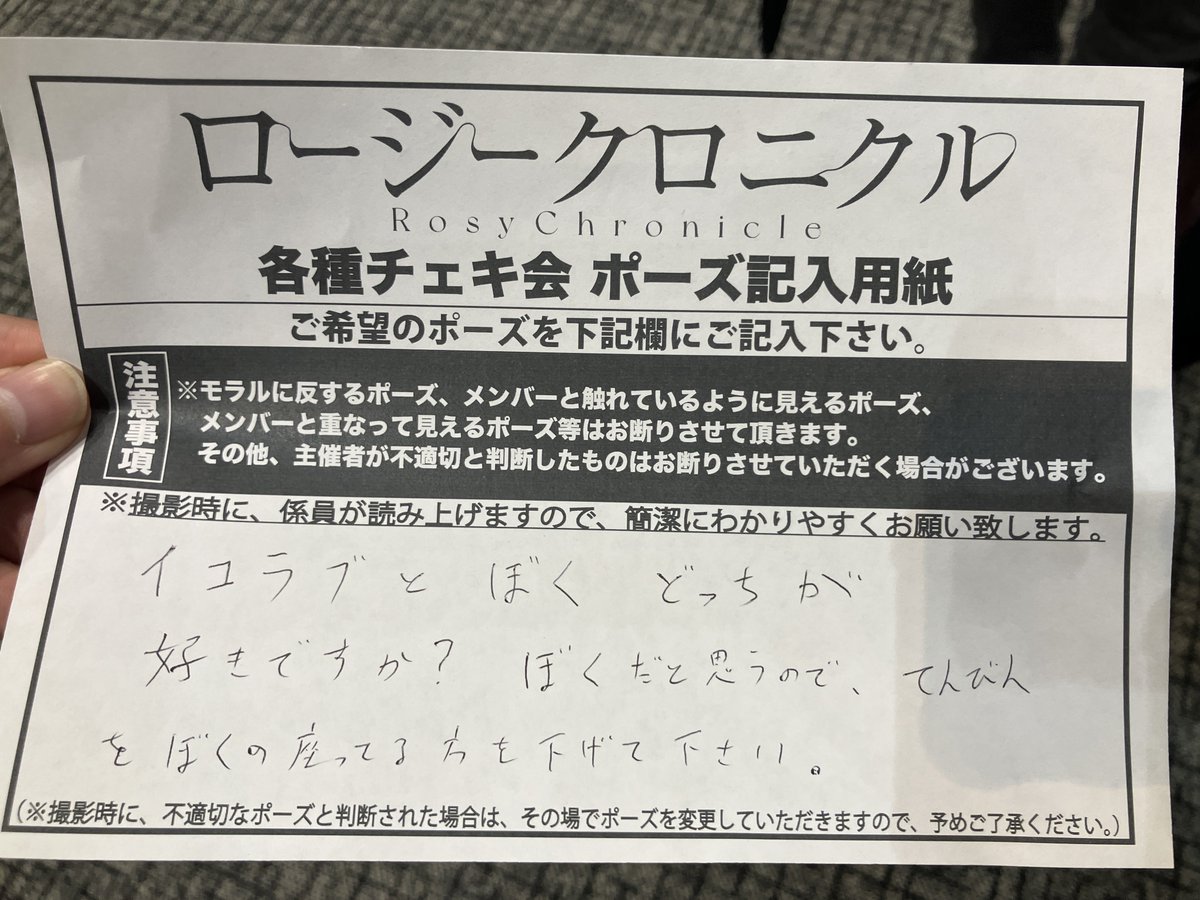 ロージークロニクル
RosyChronicle
各種チェキ会 ポーズ記入用紙
ご希望のポーズを下記欄にご記入下さい。
注意事項
※モラルに反するポーズ、メンバーと触れているように見えるポーズ、
メンバーと重なって見えるポーズ等はお断りさせて頂きます。
その他、主催者が不適切と判断したものはお断りさせていただく場合がございます。
※撮影時に、係員が読み上げますので、簡潔にわかりやすくお願い致します。
イコラブと ぼく どっちが
好きですか? ぼくだと思うので、てんびん
を ぼくの座ってる方を下げて下さい。
(※撮影時に、不適切なポーズと判断された場合は、その場でポーズを変更していただきますので、予めご了承ください。)